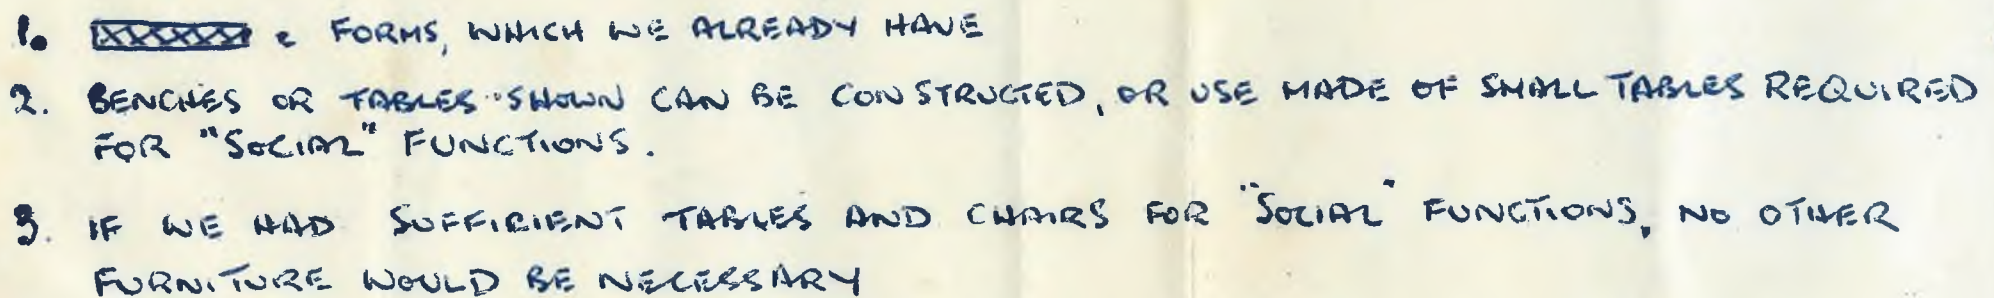 1. = FORMS, WHICH WE ALREADY HAVE
2. BENCHES OR TABLES SHOWN CAN BE CONSTRUCTED, OR USE MADE OF SMALL TABLES REQUIRED
FOR "SOCIAL" FUNCTIONS.
3. IF WE HAD SUFFICIENT TABLES AND CHAIRS FOR "SOCIAL" FUNCTIONS, NO OTHER
FURNITURE WOULD BE NECESSARY